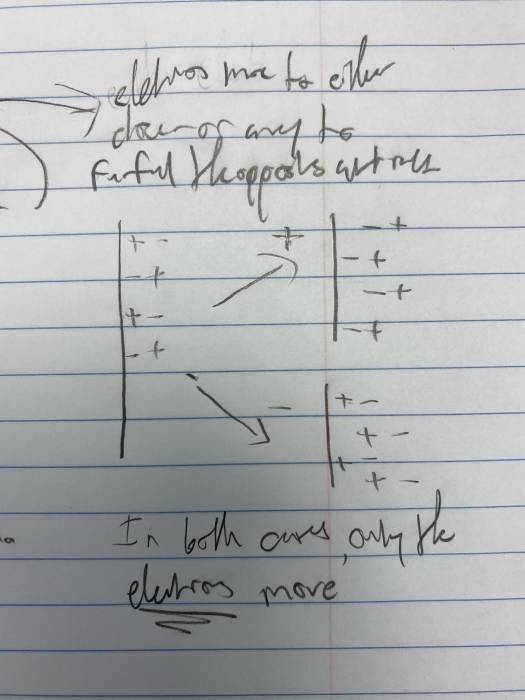 electrons move to either
closer or away to
fulfil the opposites attract
+ -
- +
+ -
- +
+
- +
- +
- +
- +
-
+ -
+ -
+ -
+ -
In both cases, only the
electrons move